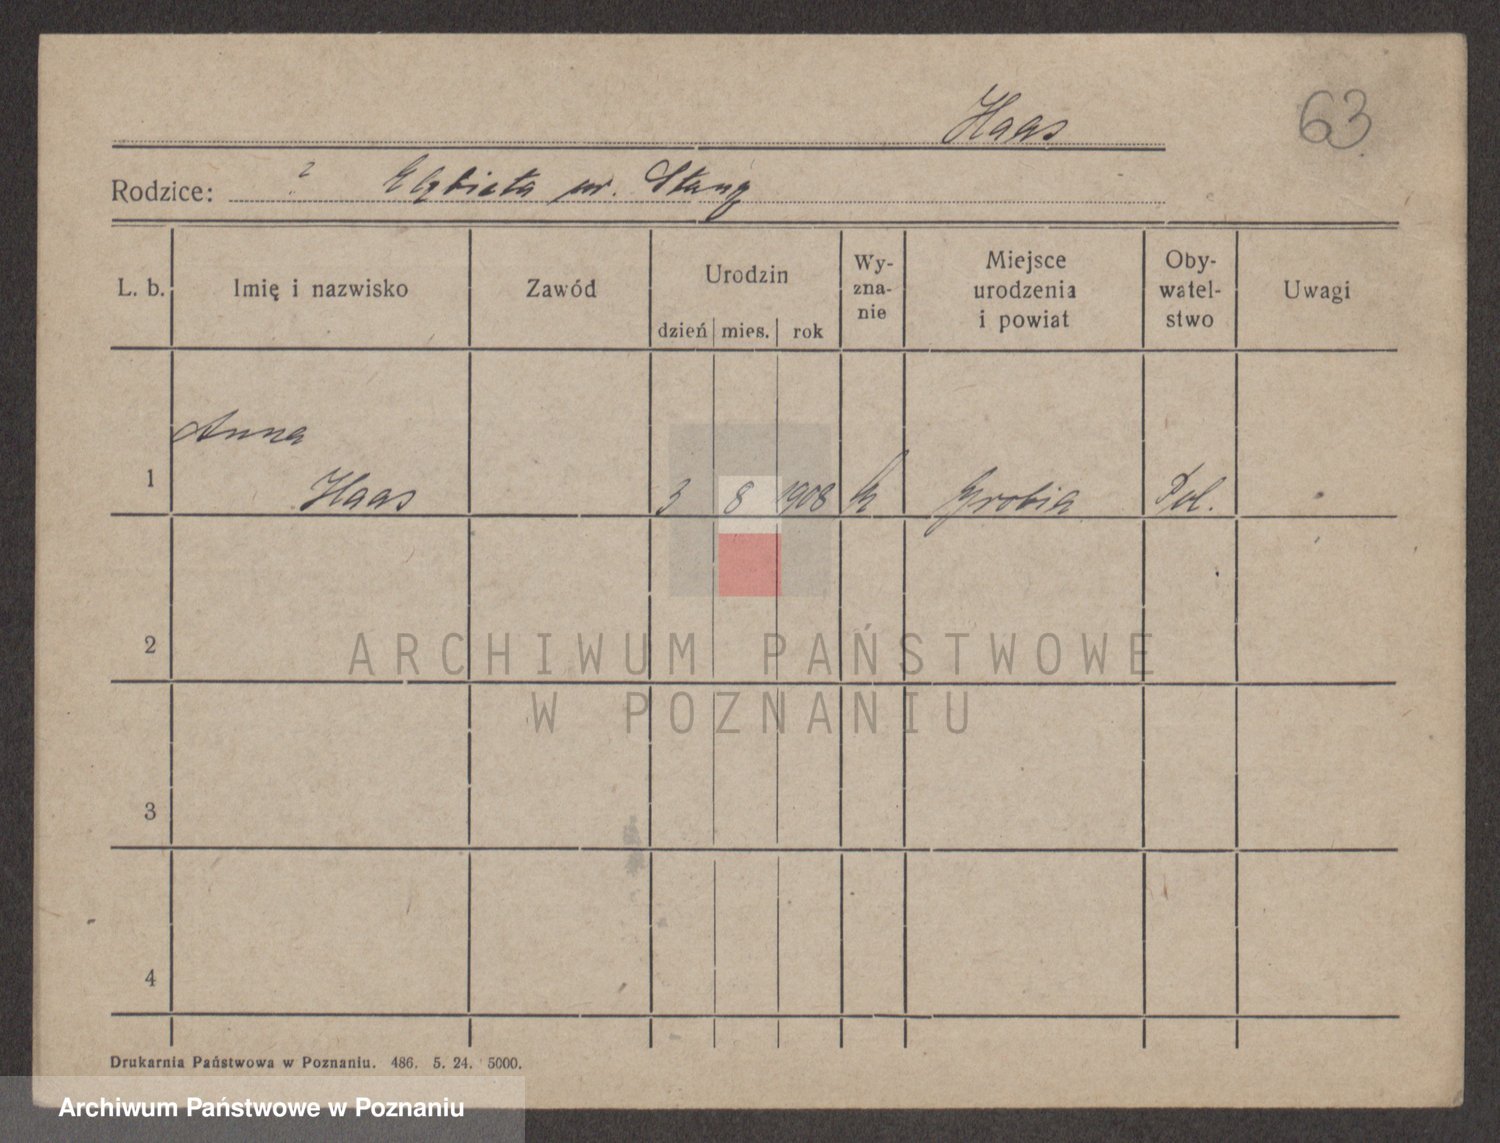 Haas
63
Rodzice: ? Elżbieta ur. Stanz
L. b.
Imię i nazwisko
Zawód
Urodzin
dzień mies. rok
Wy-
zna-
nie
Miejsce
urodzenia
i powiat
Oby-
watel-
stwo
Uwagi
Anna
1 Haas 3 8 1908 k Grobia Pol.
2
ARCHIWUM PAŃSTWOWE
W POZNANIU
3
4
Drukarnia Państwowa w Poznaniu. 486. 5. 24. 5000.
Archiwum Państwowe w Poznaniu